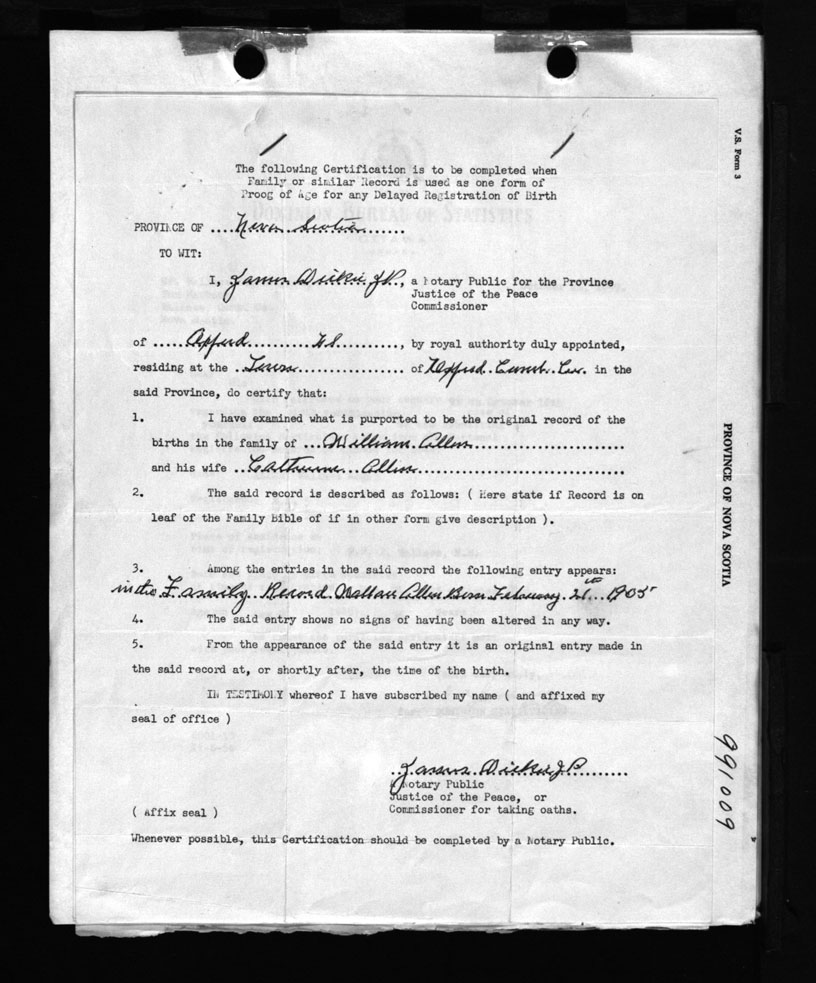 V.S. Form 3
The following Certification is to be completed when
Family or similar Record is used as one form of
Proog of Age for any Delayed Registration of Birth
DOMINION BUREAU OF STATISTICS
OTTAWA
PROVINCE OF ....Nova Scotia......
TO WIT:
I, James Dickie J.P.., a Notary Public for the Province
Justice of the Peace
Commissioner
of ..................., by royal authority duly appointed,
residing at the .................. of ........ in the
said Province, do certify that:
1. I have examined what is purported to be the original record of the
births in the family of ...William Allen......................
and his wife ..Catherine...Allen..............................
2. The said record is described as follows: ( Here state if Record is on
leaf of the Family Bible of if in other form give description ).
3. Among the entries in the said record the following entry appears:
in the Family Record Allen Born February 1905
4. The said entry shows no signs of having been altered in any way.
5. From the appearance of the said entry it is an original entry made in
the said record at, or shortly after, the time of the birth.
IN TESTIMONY whereof I have subscribed my name ( and affixed my
seal of office )
..James Dickie J.P..........
A Notary Public
Justice of the Peace, or
Commissioner for taking oaths.
( Affix seal )
Whenever possible, this Certification should be completed by a Notary Public.
PROVINCE OF NOVA SCOTIA
991009